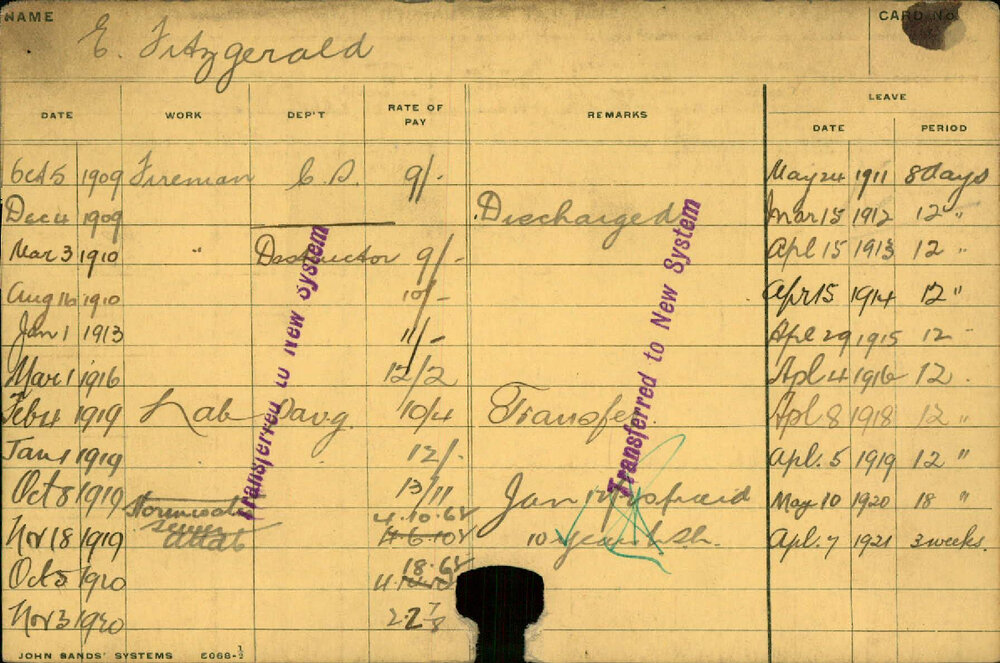 NAME
CARD No.
E. Fitzgerald
DATE WORK DEP'T RATE OF PAY REMARKS LEAVE
DATE PERIOD
Oct 5 1909 Fireman C.D. 9/- May 24 1911 8 days
Dec 4 1909 Discharged Mar 15 1912 12 "
Mar 3 1910 " Destructor 9/- Apl 15 1913 12 "
Aug 16 1910 10/- Apr 15 1914 12 "
Jan 1 1913 11/- Apl 29 1915 12 "
Mar 1 1916 12/2 Apl 4 1916 12 "
Feb 4 1919 Lab Pavg. 10/4 Transfer Apl 8 1918 12 "
Jan 1 1919 12/- Apl. 5 1919 12 "
Oct 8 1919 13/11 Jan May 10 1920 18 "
Stormwater
sewer
4.10.6½
Nov 18 1919 10 years Apl. 7 1921 3 weeks.
18.6½
Oct 5 1920
Nov 3 1920 2.2 7/8
Transferred to New System
Transferred to New System
JOHN SANDS' SYSTEMS E068-½